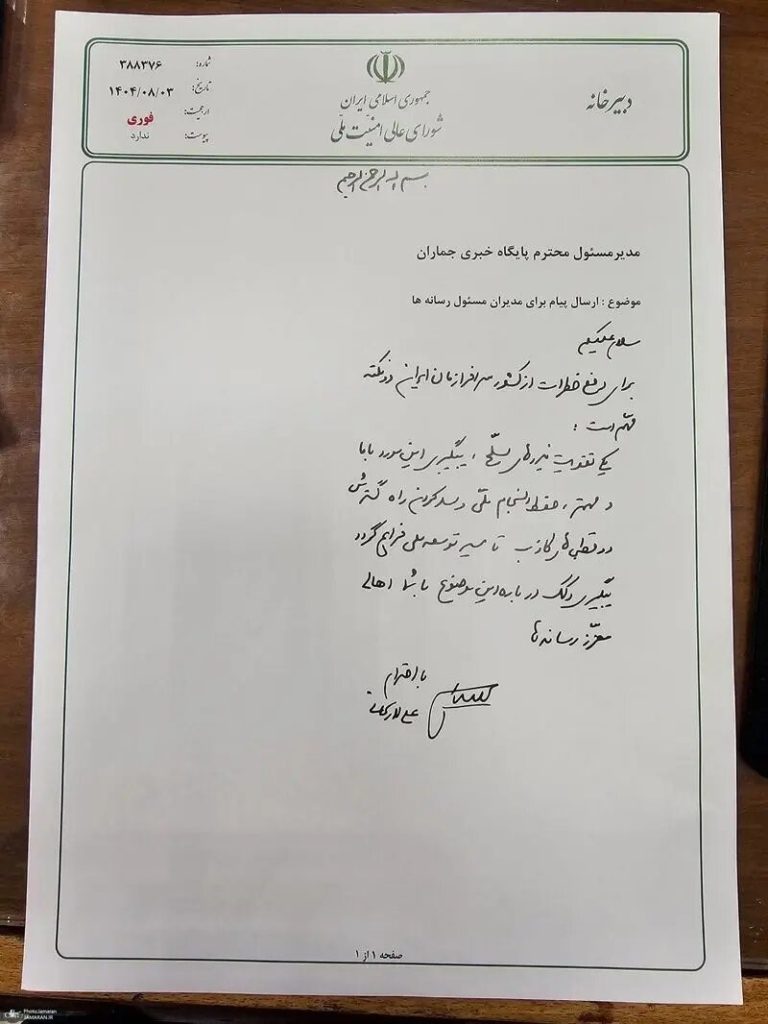 دبیرخانه
جمهوری اسلامی ایران
شورای عالی امنیت ملی
شماره: ۳۸۸۳۷۶
تاریخ: ۱۴۰۴/۰۸/۰۳
ارجحیت: فوری
پیوست: ندارد
بسم الله الرحمن الرحیم
مدیرمسئول محترم پایگاه خبری جماران
موضوع : ارسال پیام برای مدیران مسئول رسانه ها
سلام علیکم
برای رفع خطرات از کشور سرافرازمان ایران دو نکته
مهم است :
یکی تقویت نیروهای مسلّح ، پیگیری این مورد با ما
و مهمتر ، حفظ انسجام ملّی و سد کردن راه گسترش
دوقطبی‌های کاذب تا مسیر توسعه ملی فراخ گردد
پیگیری و کمک درباره این موضوع با شما اهالی
معزّز رسانه‌ها
با احترام
علی لاریجانی
صفحه ۱ از ۱
Photo:Jamaran
JAMARAN.IR